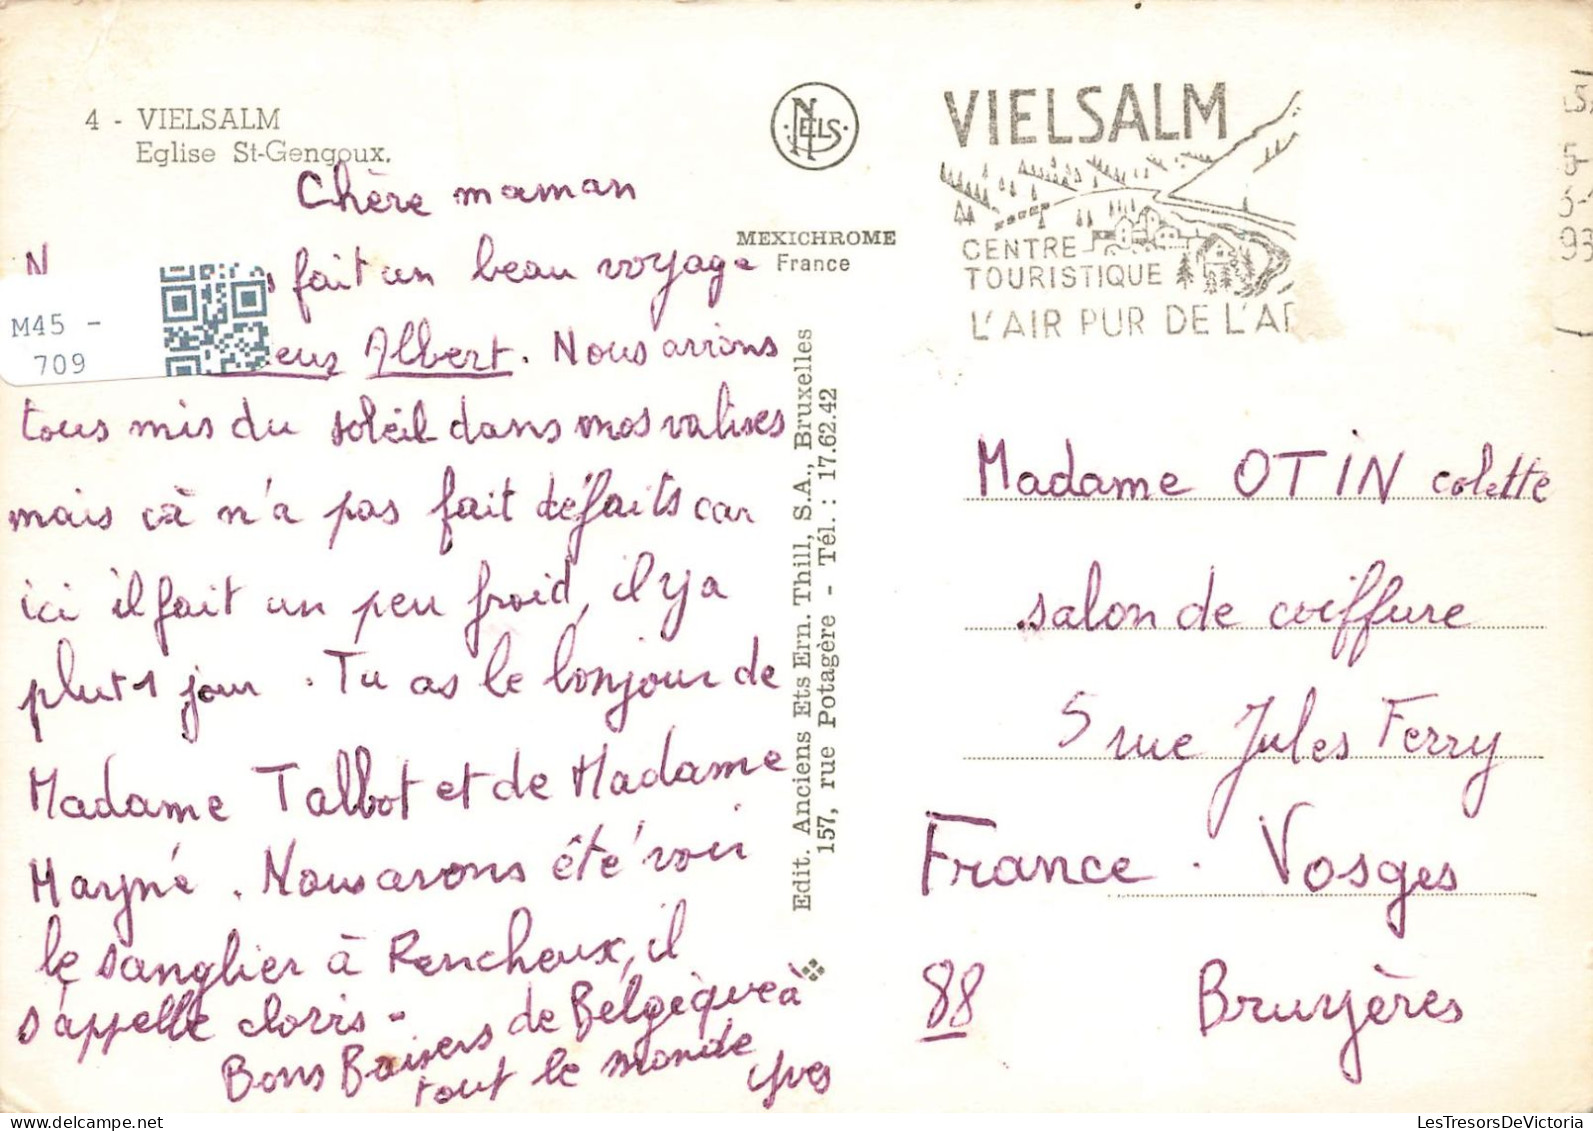 4 - VIELSALM
Eglise St-Gengoux.
NELS
MEXICHROME
France
Chère maman
fait un beau voyage
Albert. Nous avions
tous mis du soleil dans nos valises
mais cà n'a pas fait défaits car
ici il fait un peu froid, il y a
plut 1 jour. Tu as le bonjour de
Madame Talbot et de Madame
Haryné. Nous avons été voir
le sanglier à Rencheux, il
s'appelle cloris -
Bons Baisers de Bélgèque à
tout le monde
Yves
M45 -
709
Edit. Anciens Ets Ern. Thill, S.A., Bruxelles
157, rue Potagère - Tél. : 17.62.42
VIELSALM
CENTRE
TOURISTIQUE
L'AIR PUR DE L'AR
Madame OTIN colette
salon de coiffure
5 rue Jules Ferry
France. Vosges
88 Bruyères
LesTresorsDeVictoria